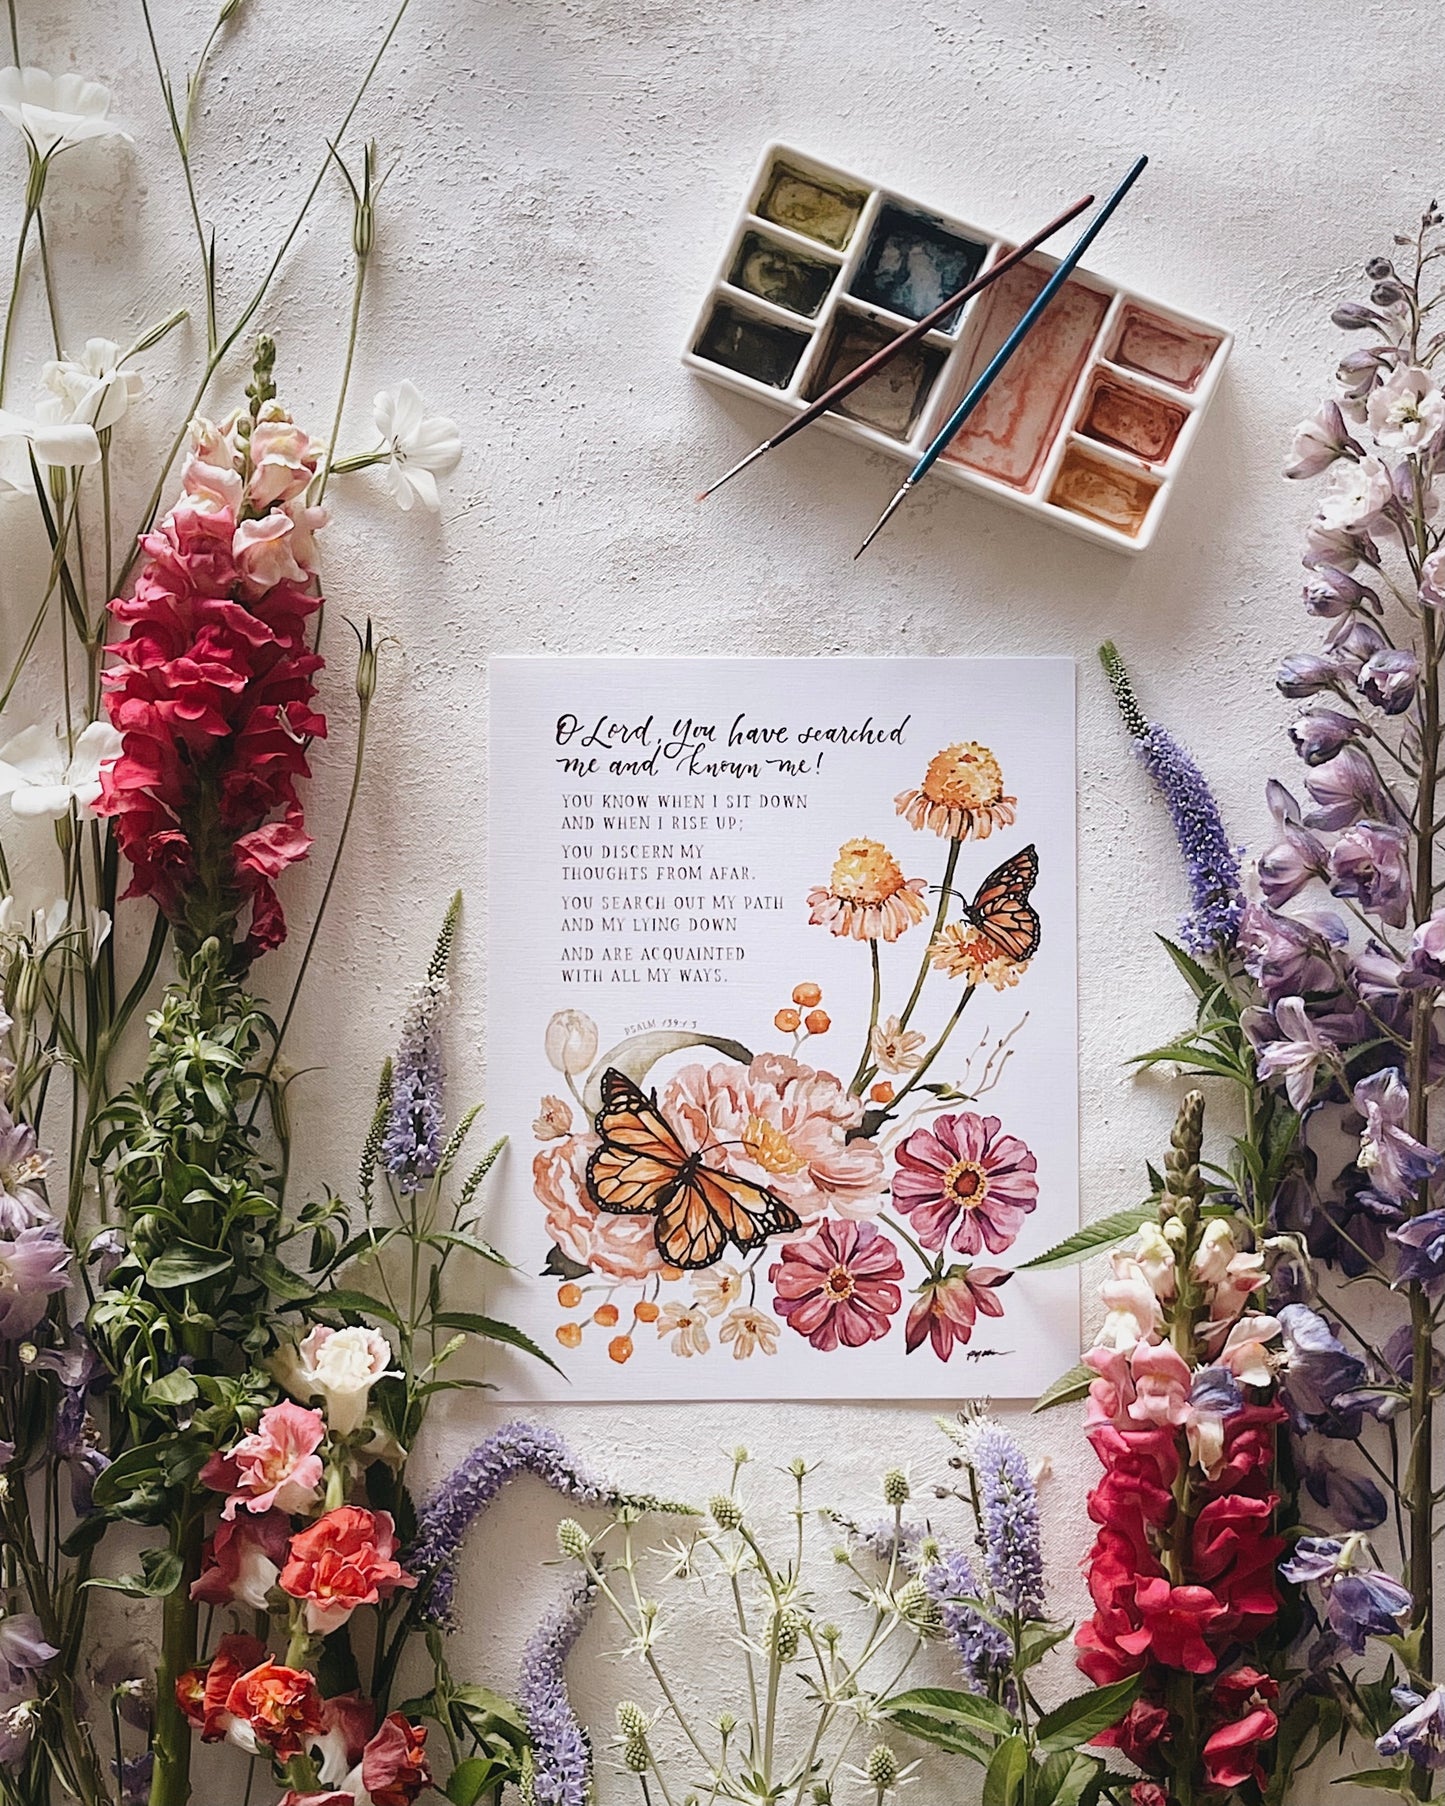 O Lord, You have searched
me and known me!
YOU KNOW WHEN I SIT DOWN
AND WHEN I RISE UP;
YOU DISCERN MY
THOUGHTS FROM AFAR.
YOU SEARCH OUT MY PATH
AND MY LYING DOWN
AND ARE ACQUAINTED
WITH ALL MY WAYS.
PSALM 139:1-3